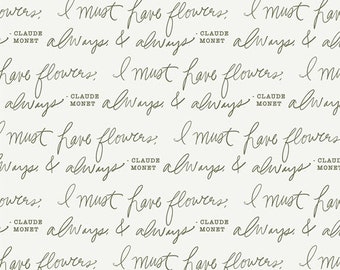 have flowers, I must have flowers, I
- CLAUDE MONET always, & always - CLAUDE MONET always, &
I must have flowers, I must have flowers,
always - CLAUDE MONET always, & always - CLAUDE MONET
have flowers, I must have flowers, I
- CLAUDE MONET always, & always - CLAUDE MONET always, &
I must have flowers, I must have flowers,
always, & always - CLAUDE MONET always, & always - CLAUDE MONET
have flowers, I must have flowers, I
- CLAUDE MONET always, & always - CLAUDE MONET always, &